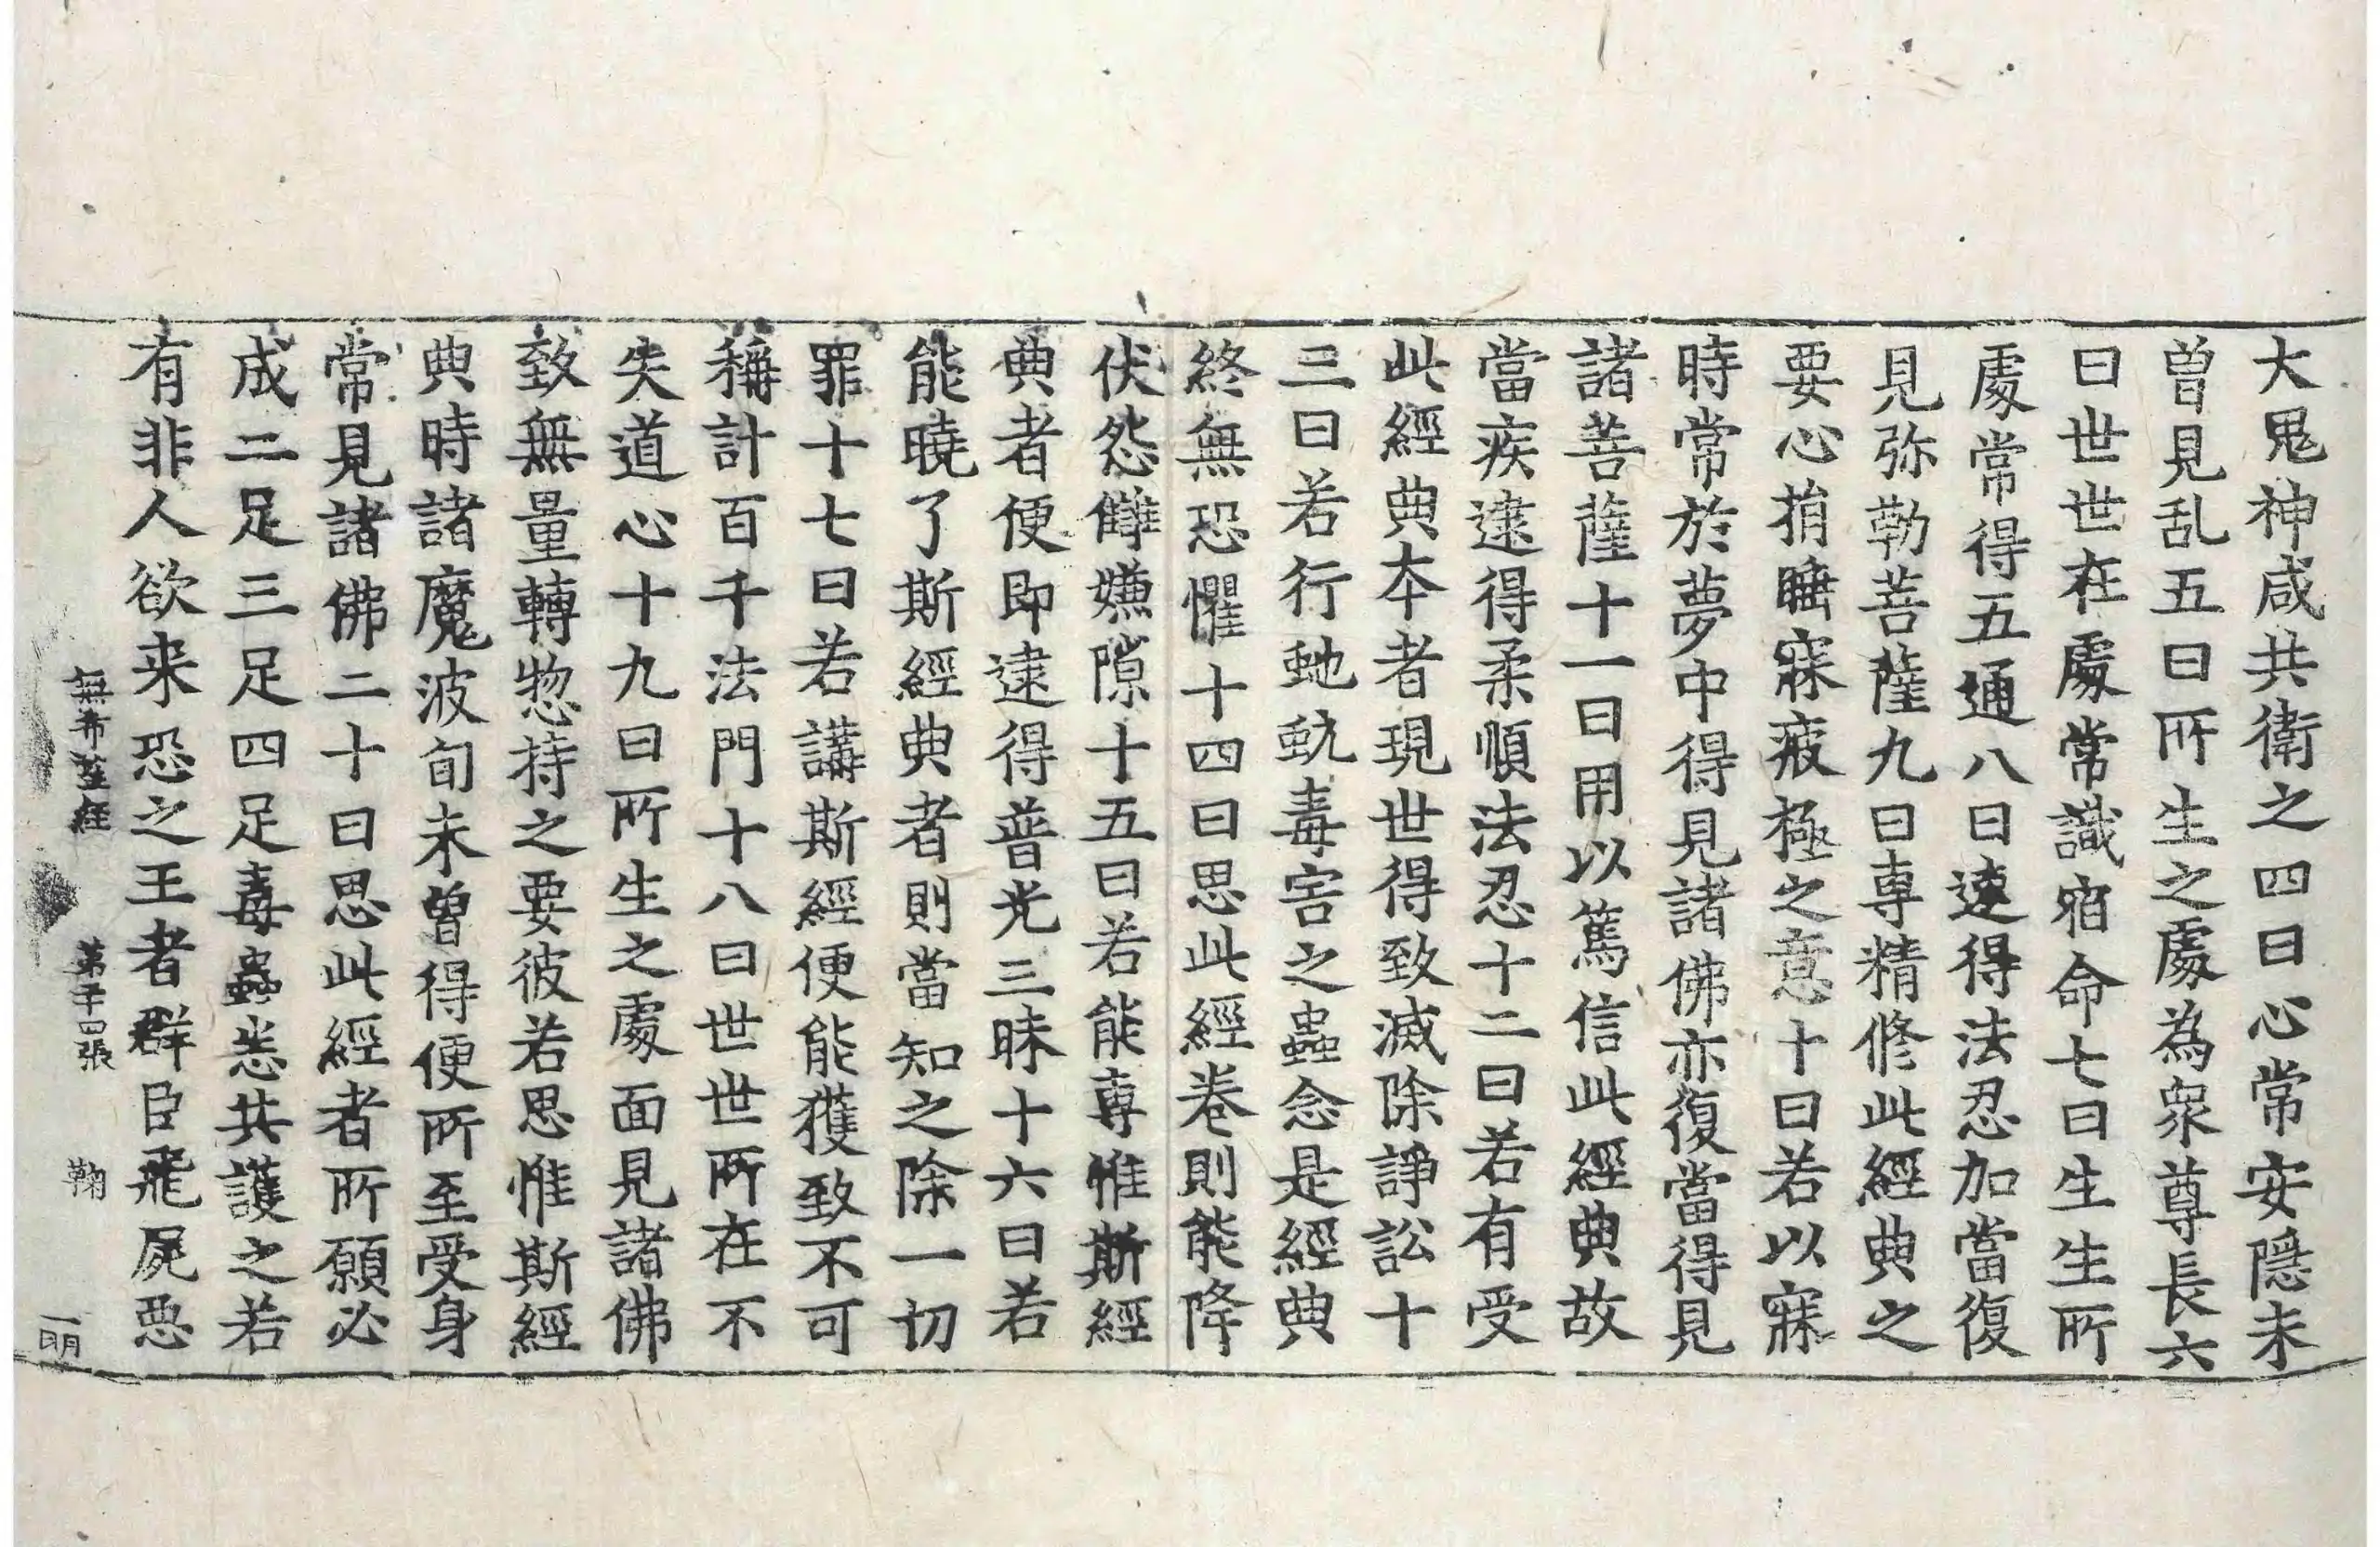 大鬼神咸共衛之四曰心常安隱未
曾見乱五曰所生之處為衆尊長六
曰世世在處常識宿命七曰生生所
處常得五通八曰逮得法忍加當復
見弥勒菩薩九曰專精修此經典之
要心捐睡寐疲極之意十曰若以寐
時常於夢中得見諸佛亦復當得見
諸菩薩十一曰用以篤信此經典故
當疾逮得柔順法忍十二曰若有受
此經典本者現世得致滅除諍訟十
三曰若行虵虺毒害之蟲念是經典
終無恐懼十四曰思此經卷則能降
伏怨讎嫌隙十五曰若能專惟斯經
典者便即逮得普光三昧十六曰若
能曉了斯經典者則當知之除一切
罪十七曰若講斯經便能獲致不可
稱計百千法門十八曰世世所在不
失道心十九曰所生之處面見諸佛
致無量轉惣持之要彼若思惟斯經
典時諸魔波旬未曾得便所至受身
常見諸佛二十曰思此經者所願必
成二足三足四足毒蟲悉共護之若
有非人欲来恐之王者群臣飛屍惡
無希望經 第十四張 鞠 一明